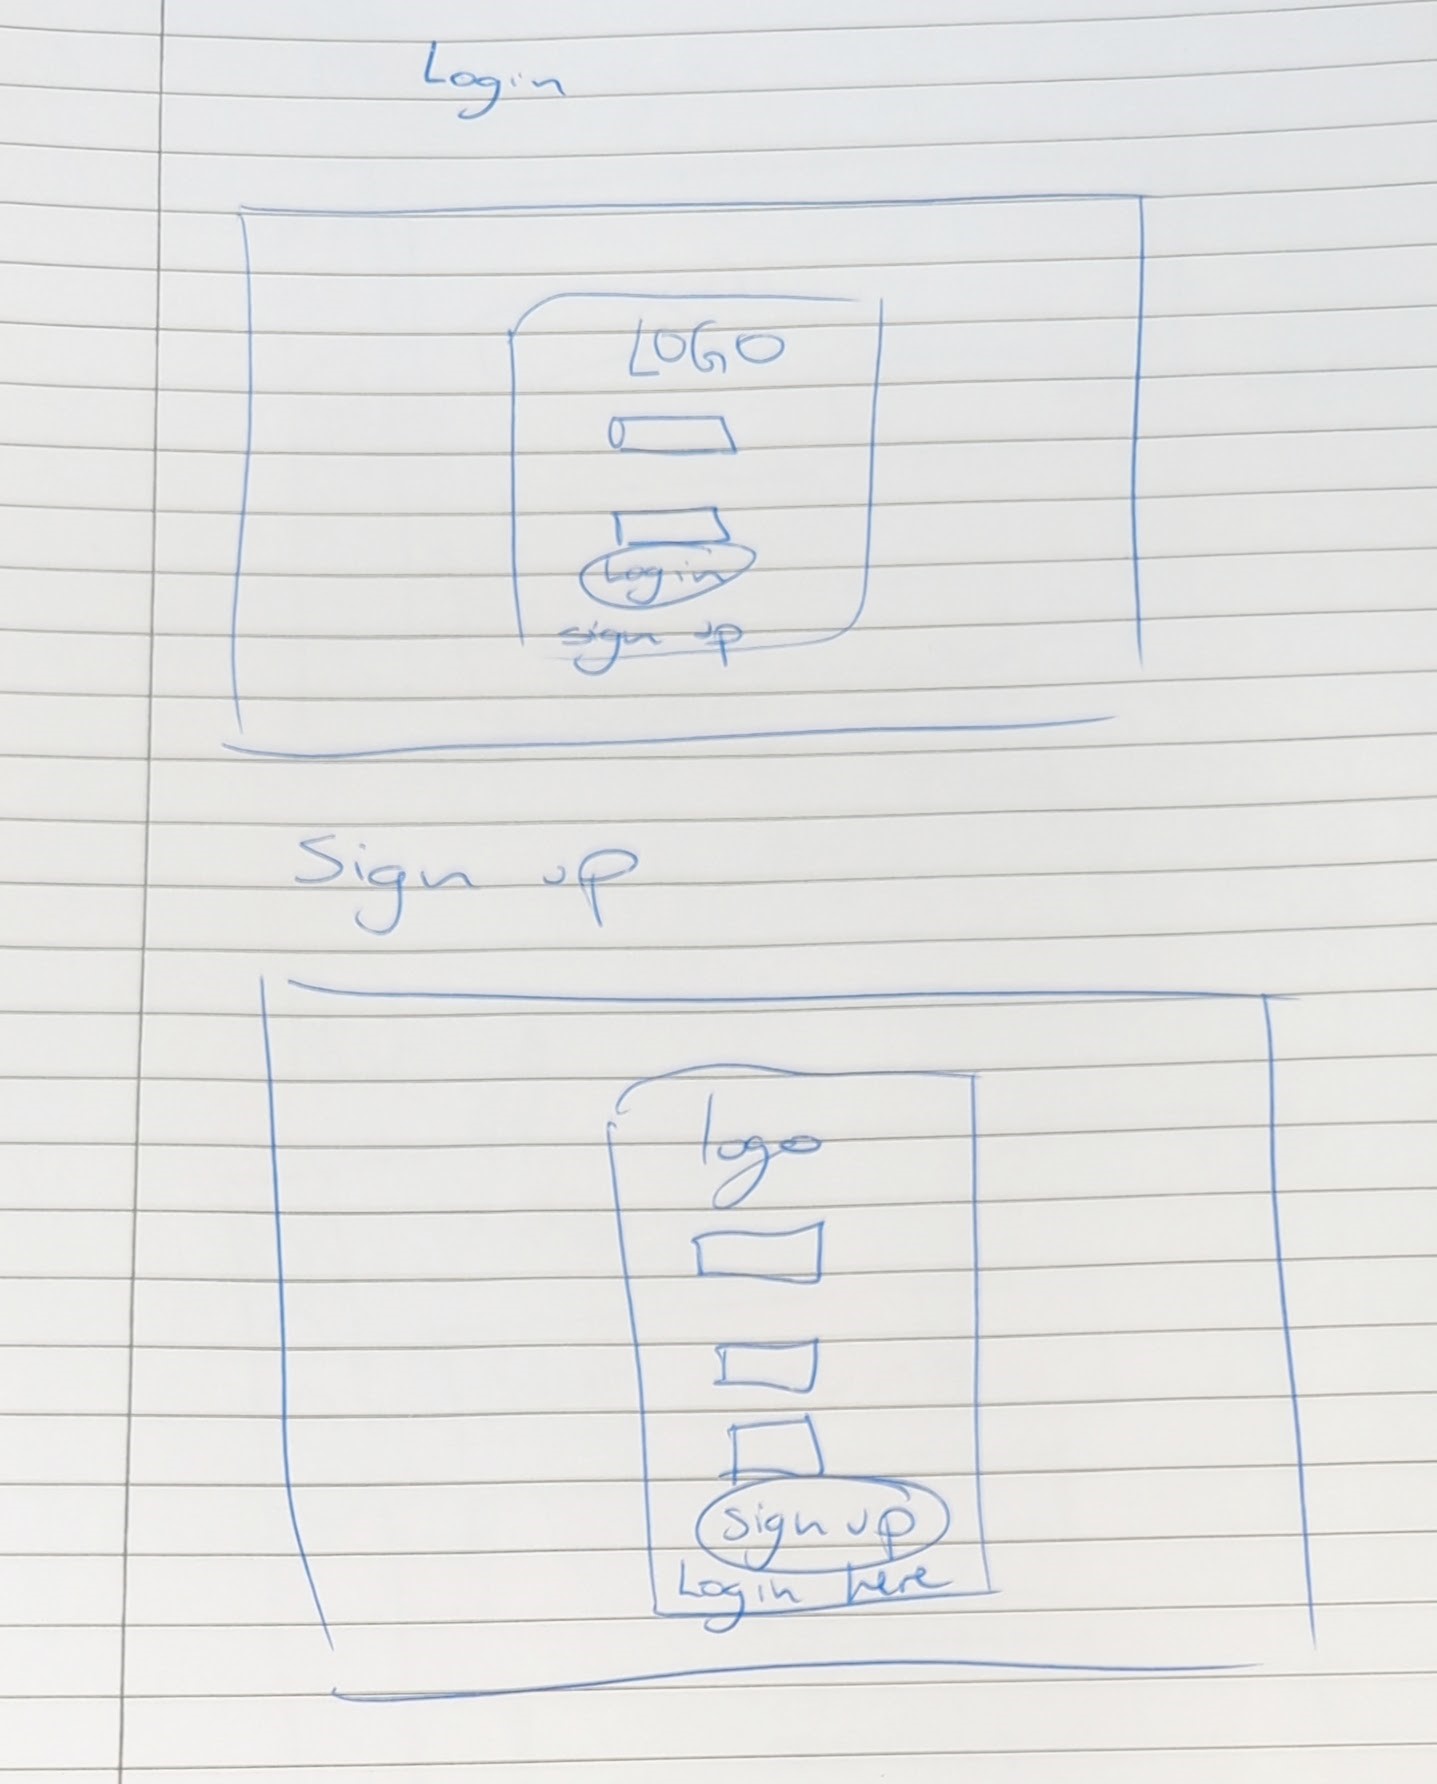 Login
LOGO
Login
sign up
Sign up
logo
sign up
Login here